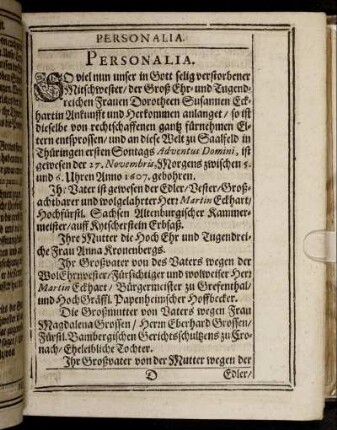 PERSONALIA.
PERSONALIA.
SO viel nun unser in Gott selig verstorbener
Mitschwester/ der Groß Ehr- und Tugend-
reichen Frauen Dorotheen Susannen Eck-
hartin Ankunfft und Herkommen anlanget/ so ist
dieselbe von rechtschaffenen gantz fürnehmen El-
tern entsprossen/ und an diese Welt zu Saalfeld in
Thüringen ersten Sontags Adventus Domini, ist
gewesen der 27. Novembris, Morgens zwischen 5.
und 6. Uhren Anno 1607. gebohren.
Ihr Vater ist gewesen der Edler/ Vester/ Groß-
achtbarer und wolgelahrter Herr Martin Eckhart/
Hochfürstl. Sachsen Altenburgischer Kammer-
meister/ auff Kytscherstein Erbsaß.
Ihre Mutter die Hoch Ehr und Tugendrei-
che Frau Anna Kronenbergs.
Ihr Großvater von des Vaters wegen der
WolEhrnvester/ Fürsichtiger und wolweiser Herr
Martin Eckhart/ Bürgermeister zu Grefenthal/
und Hoch Gräffl. Papenheimscher Hoffbecker.
Die Großmutter von Vaters wegen Frau
Magdalena Grossen/ Herrn Eberhard Grossen/
Fürstl. Bambergischen Gerichtsschultzens zu Cro-
nach/ Eheleibliche Tochter.
Ihr Großvater von der Mutter wegen der
D Edler/